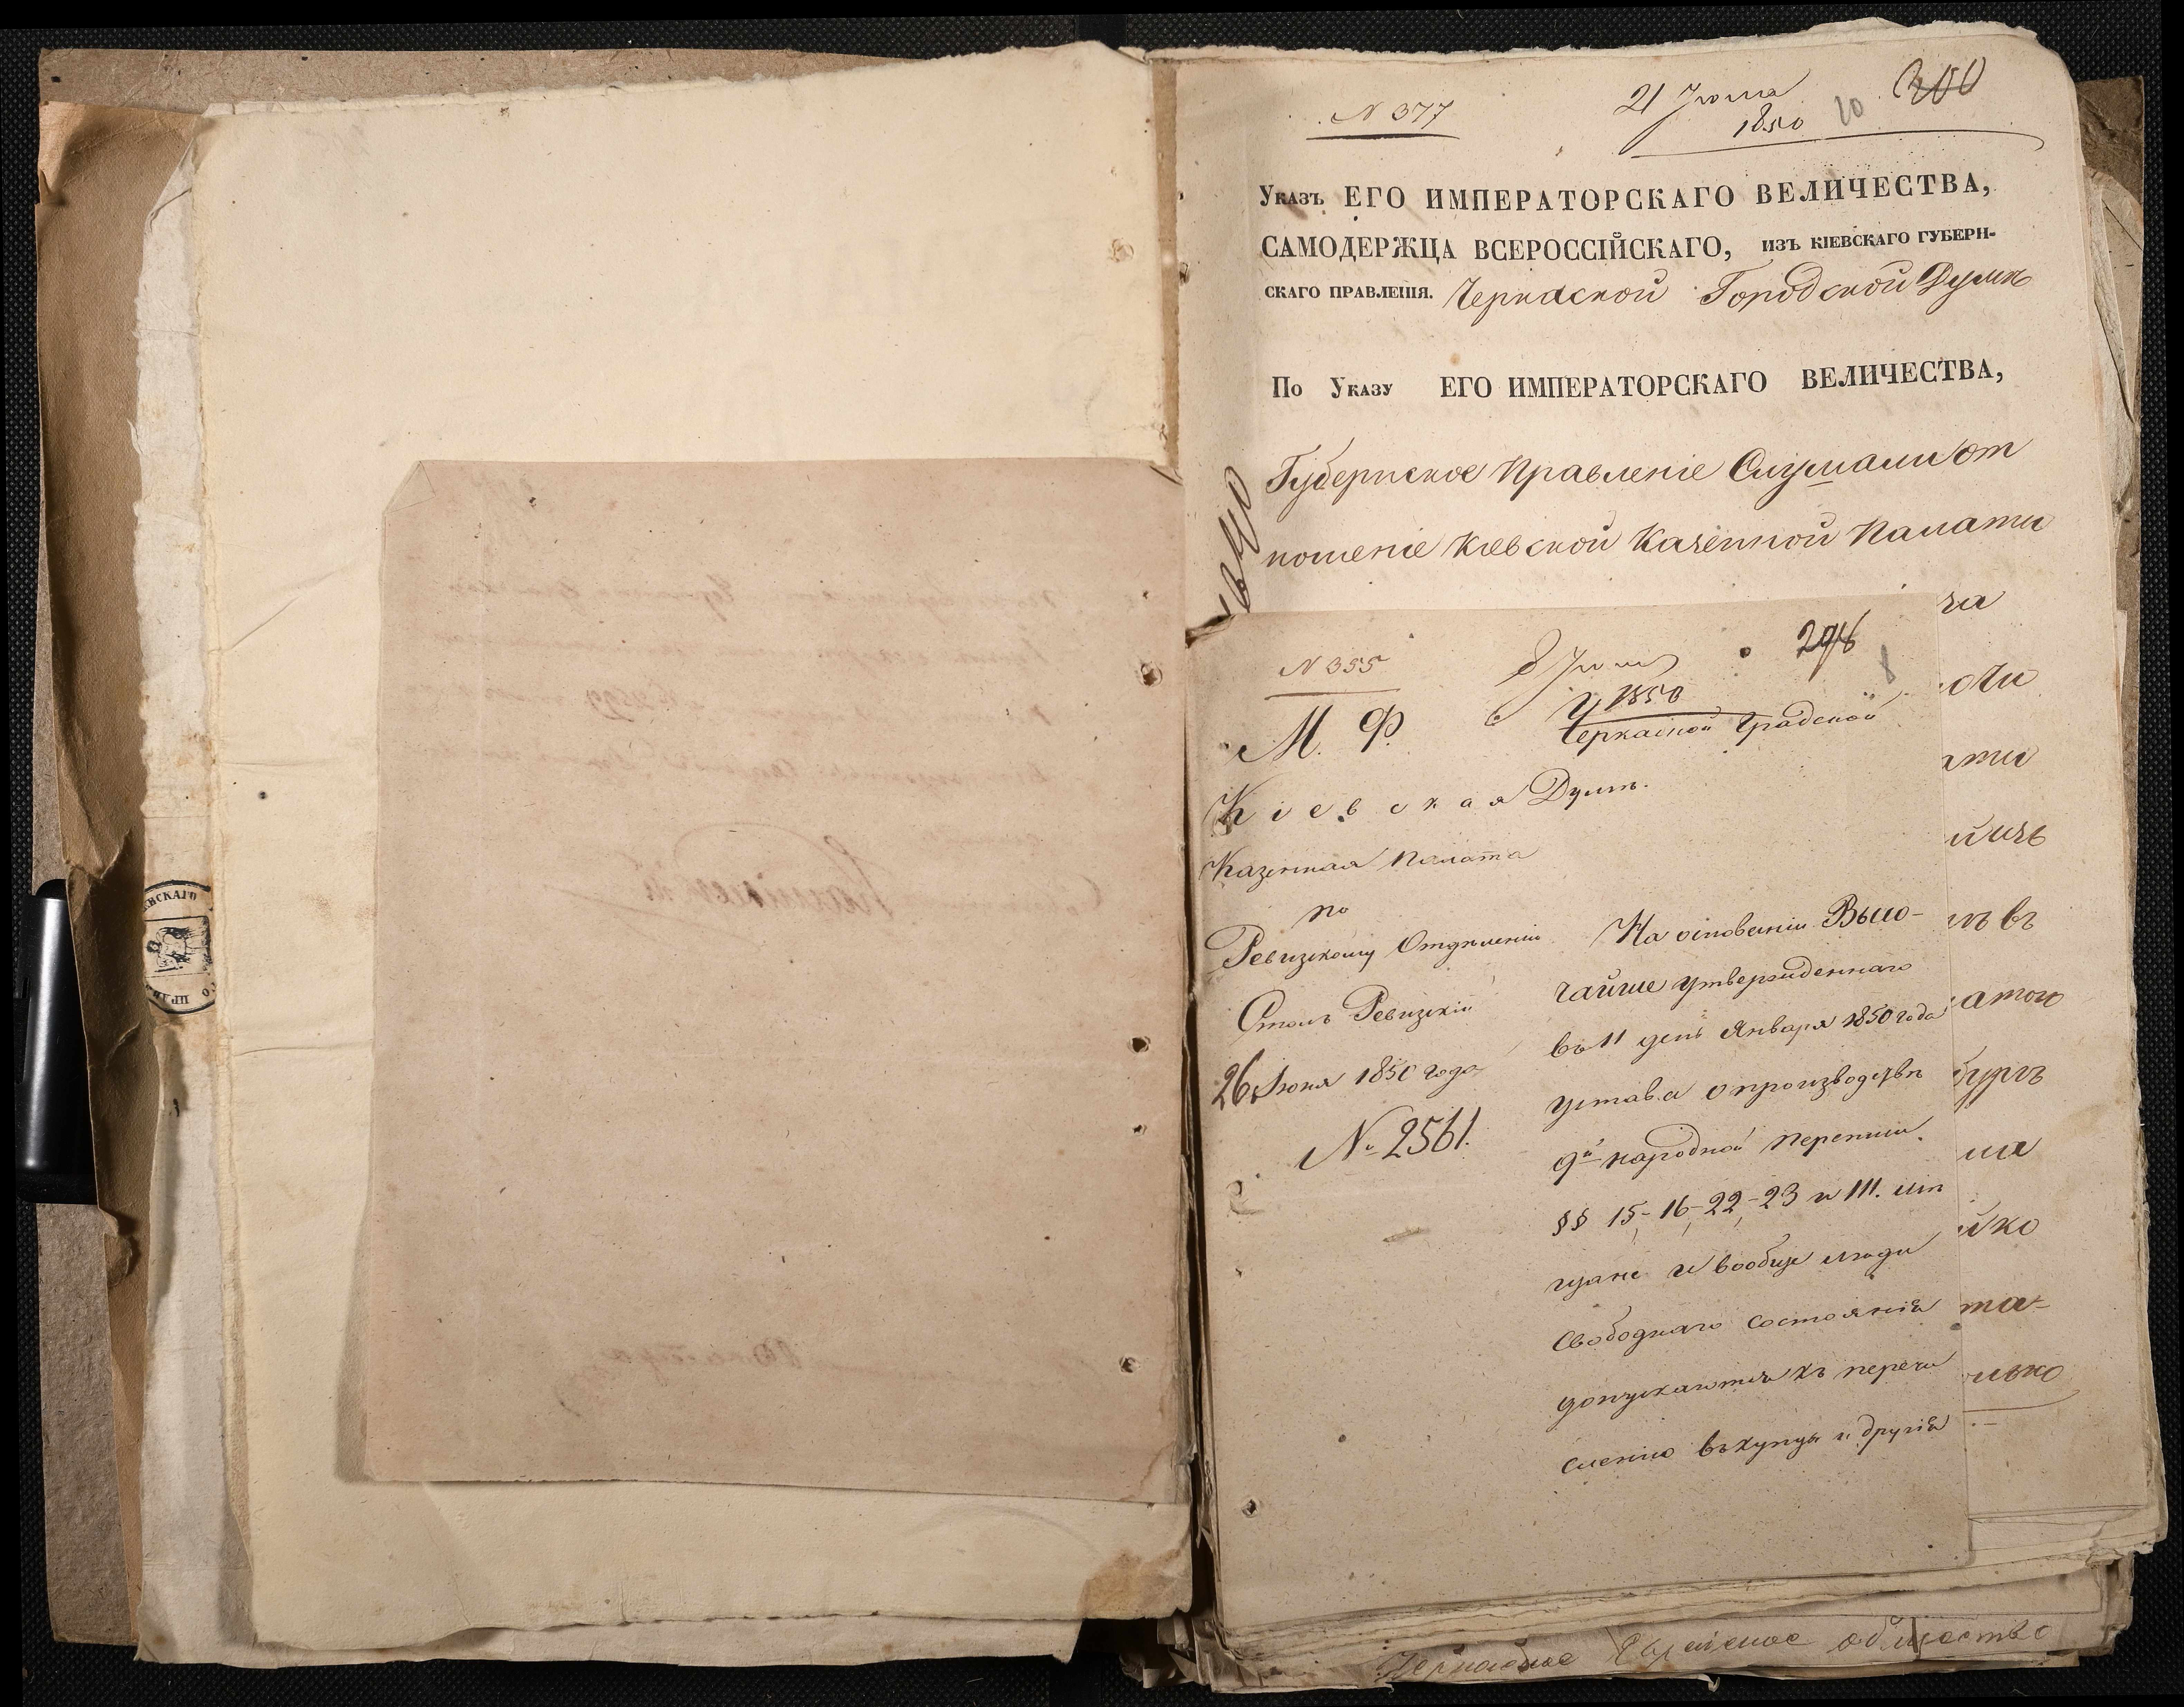 N 377
21 Июля
1850
20
200
Указъ ЕГО ИМПЕРАТОРСКАГО ВЕЛИЧЕСТВА,
САМОДЕРЖЦА ВСЕРОССІЙСКАГО, изъ кіевскаго губерн-
скаго правленія. Черкаской Городской Думѣ
По Указу ЕГО ИМПЕРАТОРСКАГО ВЕЛИЧЕСТВА,
Губернское Правленіе Слушали от
ношеніе Кіевской Казенной Палаты
N 355
8 Июля
1850
8
М. Ф.
Черкаской Градской
Кіевская
Думѣ.
Казенная Палата
по
Ревизскому Отдѣленію
Столъ Ревизскій
26 Июня 1850 года
№ 2561.
На основаніи Высо-
чайше утвержденнаго
въ 11 день Января 1850 года
устава о производствѣ
9й народной переписи
§§ 15, 16, 22, 23 и 111. мѣ
щане и вообще люди
свободнаго состоянія
допускаются къ перечи
сленію въ купцы и другія
ча
ати
въ
атого
бургъ
йко
та-
лько
ЕВСКАГО
ПРАВ
Черкаское Еврейское общество